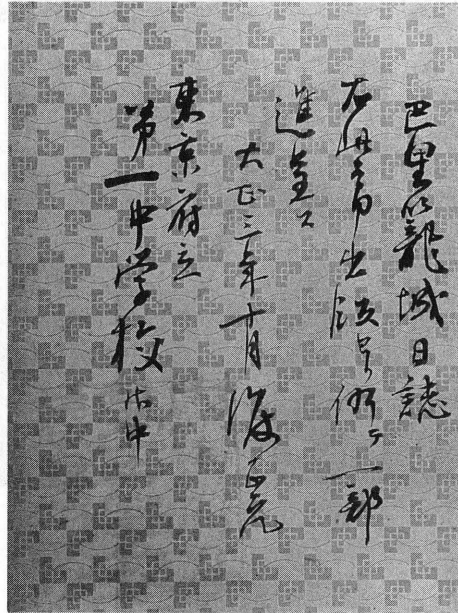 巴里籠城日誌
右此節出版 一部
進呈ス
大正三年十月 渡正元
東京府立
第一中学校 御中